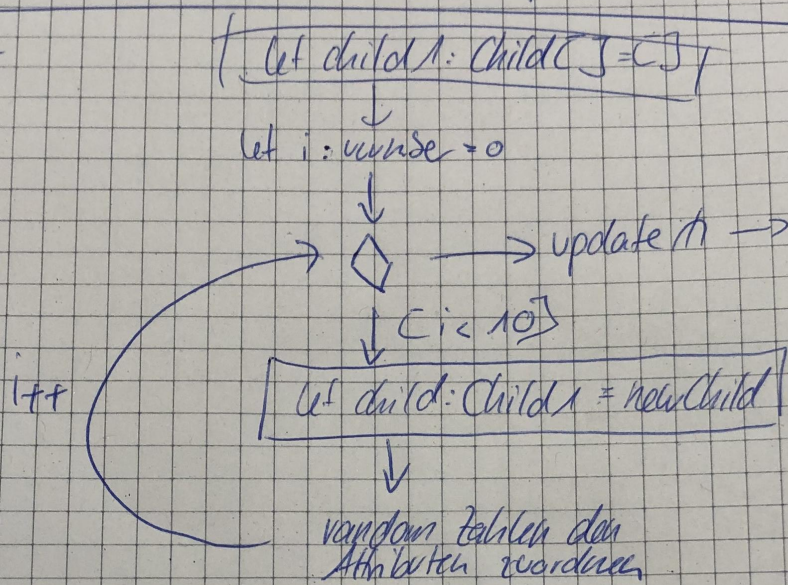 let child1: Child[] = []
let i: number = 0
update()
[i < 10]
i++
let child: Child1 = new Child
random Zahlen den
Attributen zuordnen